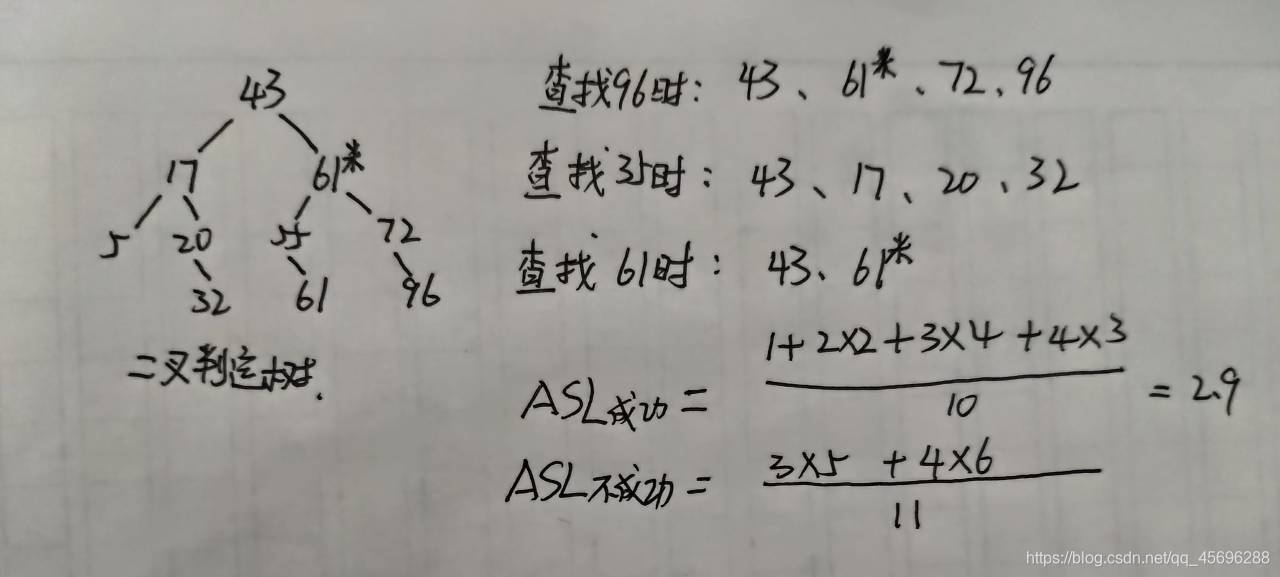 43
17 61*
5 20 55 72
32 61 96
二叉判定树.
查找96时: 43、61*、72、96
查找35时: 43、17、20、32
查找 61时: 43、61*
ASL成功 = 1+2×2+3×4+4×3 / 10 = 2.9
ASL不成功 = 3×5 +4×6 / 11
https://blog.csdn.net/qq_45696288